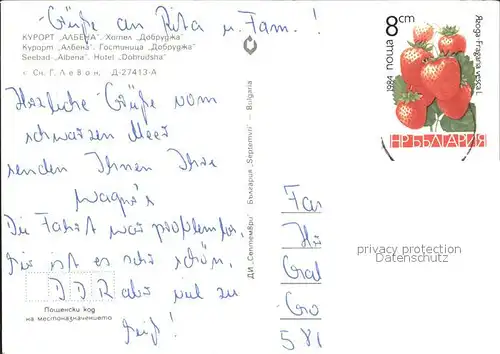 Grüße an Rita u. Fam.!
КУРОРТ „АЛБЕНА". Хотел „Добруджа"
Курорт „Албена". Гостиница „Добруджа"
Seebad „Albena". Hotel „Dobrudsha"
с Сн. Г. Леван, Д-27413-А
Herzliche Grüße vom
schwarzen Meer
senden Ihnen Ihre
Wagner's
Die Fahrt war problemlos,
hier ist es sehr schön,
DDR aber viel zu
heiß!
Пощенски код
на местоназначението
ДИ „Септември" България „Septemvri" - Bulgaria
8 cm
1984 поща
Ягода-Fragaria vesca L.
НР БЪЛГАРИЯ
Fam
581
privacy protection
Datenschutz